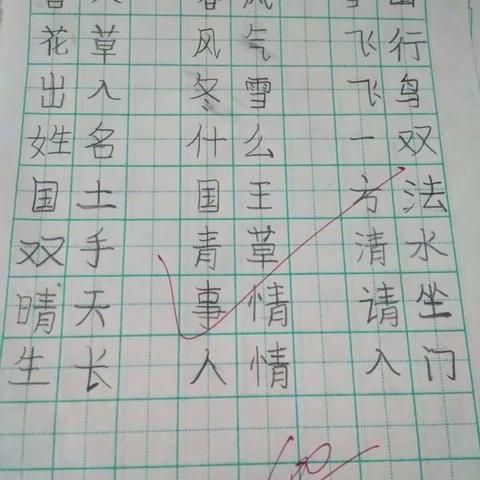 花草 风气 飞行
出入 冬雪 飞鸟
姓名 什么 一双
国土 国王 方法
双手 青草 清水
晴天 事情 请坐
生长 人情 入门